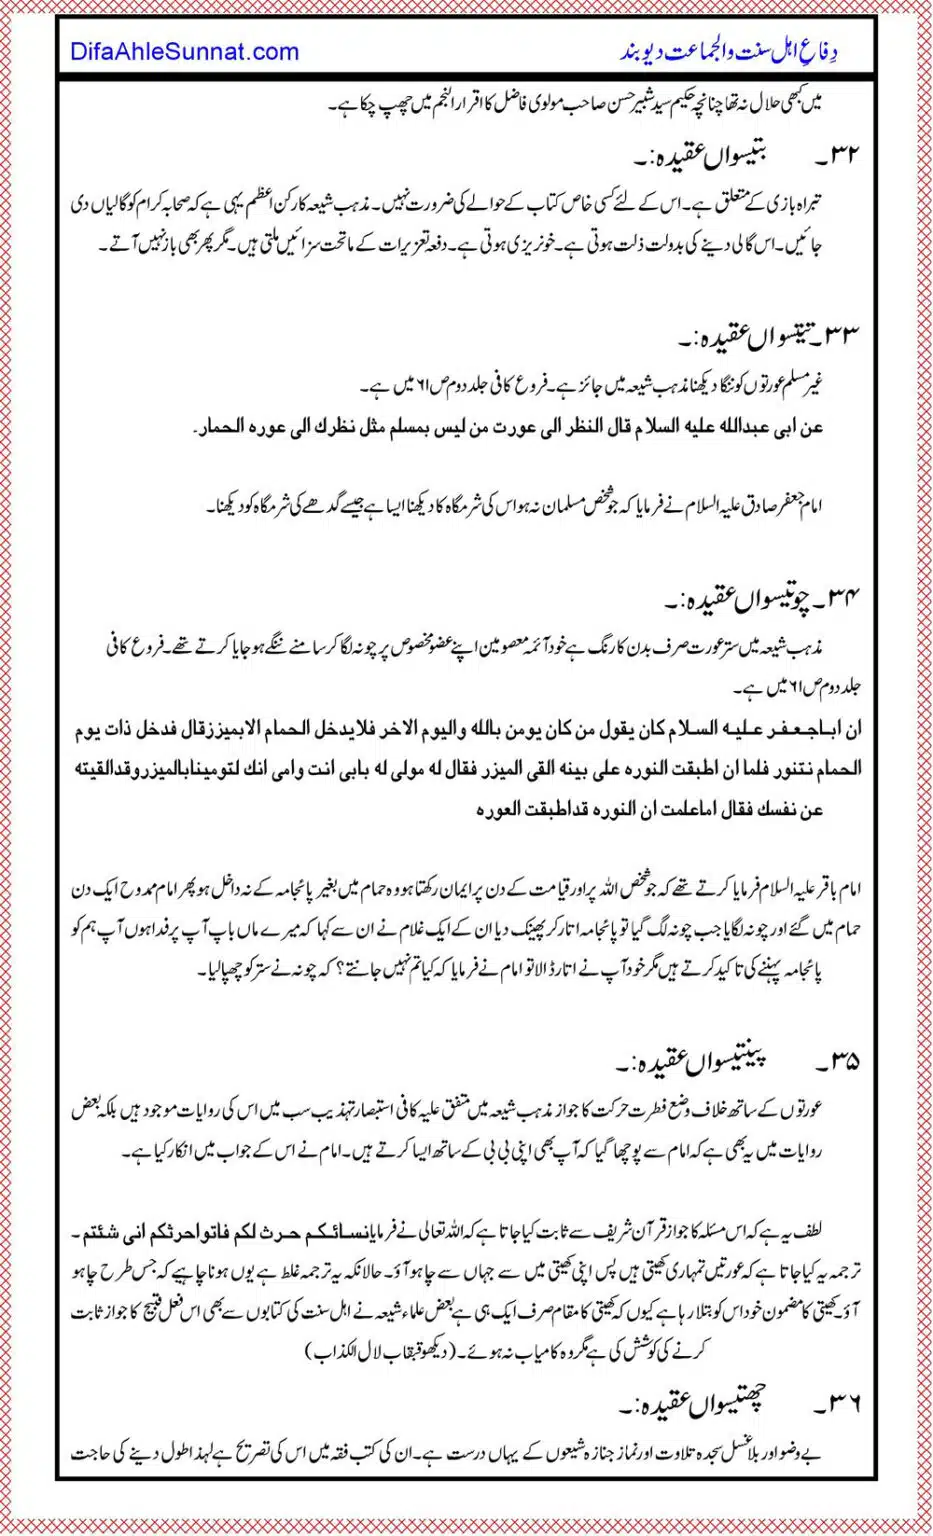 DifaAhleSunnat.com
دِفاعِ اہل سنت والجماعت دیوبند
میں کبھی حلال نہ تھا چنانچہ حکیم سید شبیر حسن صاحب مولوی فاضل کا اقرار النجم میں چھپ چکا ہے۔
۳۲۔ بتیسواں عقیدہ:۔
تبراہ بازی کے متعلق ہے۔ اس کے لئے کسی خاص کتاب کے حوالے کی ضرورت نہیں۔ مذہب شیعہ کا رکن اعظم یہی ہے کہ صحابہ کرام کو گالیاں دی
جائیں۔ اس گالی دینے کی بدولت ذلت ہوتی ہے۔ خونریزی ہوتی ہے۔ دفعہ تعزیرات کے ماتحت سزائیں ملتی ہیں۔ مگر پھر بھی باز نہیں آتے۔
۳۳۔ تیتسواں عقیدہ:۔
غیر مسلم عورتوں کو ننگا دیکھنا مذہب شیعہ میں جائز ہے۔ فروع کافی جلد دوم ص ۶۱ میں ہے۔
عن ابی عبدالله علیه السلام قال النظر الی عورت من لیس بمسلم مثل نظرك الی عوره الحمار۔
امام جعفر صادق علیہ السلام نے فرمایا کہ جو شخص مسلمان نہ ہو اس کی شرمگاہ کا دیکھنا ایسا ہے جیسے گدھے کی شرمگاہ کو دیکھنا۔
۳۴۔ چوتیسواں عقیدہ:۔
مذہب شیعہ میں ستر عورت صرف بدن کا رنگ ہے خود آئمہ معصومین اپنے عضو مخصوص پر چونہ لگا کر سامنے ننگے ہو جایا کرتے تھے۔ فروع کافی
جلد دوم ص ۶۱ میں ہے۔
ان اباجعفر علیه السلام کان یقول من کان یومن بالله والیوم الاخر فلا یدخل الحمام الابمیزر قال فدخل ذات یوم
الحمام نتنور فلما ان اطبقت النوره علی بینه القی المیزر فقال له مولی له بابی انت وامی انك لتومینا بالمیزر وقد القیته
عن نفسك فقال اماعلمت ان النوره قداطبقت العوره
امام باقر علیہ السلام فرمایا کرتے تھے کہ جو شخص اللہ پر اور قیامت کے دن پر ایمان رکھتا ہو وہ حمام میں بغیر پائجامہ کے نہ داخل ہو پھر امام ممدوح ایک دن
حمام میں گئے اور چونہ لگایا جب چونہ لگ گیا تو پائجامہ اتار کر پھینک دیا ان کے ایک غلام نے ان سے کہا کہ میرے ماں باپ آپ پر فدا ہوں آپ ہم کو
پائجامہ پہننے کی تاکید کرتے ہیں مگر خود آپ نے اتار ڈالا تو امام نے فرمایا کہ کیا تم نہیں جانتے؟ کہ چونہ نے ستر کو چھپا لیا۔
۳۵۔ پینتیسواں عقیدہ:۔
عورتوں کے ساتھ خلاف وضع فطرت حرکت کا جواز مذہب شیعہ میں متفق علیہ کافی استبصار تہذیب سب میں اس کی روایات موجود ہیں بلکہ بعض
روایات میں یہ بھی ہے کہ امام سے پوچھا گیا کہ آپ بھی اپنی بی بی کے ساتھ ایسا کرتے ہیں۔ امام نے اس کے جواب میں انکار کیا ہے۔
لطف یہ ہے کہ اس مسئلہ کا جواز قرآن شریف سے ثابت کیا جاتا ہے کہ اللہ تعالی نے فرمایا نسائکم حرث لکم فاتوا حرثکم انی شئتم۔
ترجمہ یہ کیا جاتا ہے کہ عورتیں تمہاری کھیتی ہیں پس اپنی کھیتی میں سے جہاں سے چاہو آؤ۔ حالانکہ یہ ترجمہ غلط ہے یوں ہونا چاہیے کہ جس طرح چاہو
آؤ۔ کھیتی کا مضمون خود اس کو بتلا رہا ہے کیوں کہ کھیتی کا مقام صرف ایک ہی ہے بعض علماء شیعہ نے اہل سنت کی کتابوں سے بھی اس فعل قبیح کا جواز ثابت
کرنے کی کوشش کی ہے مگر وہ کامیاب نہ ہوئے۔ (دیکھو قبقاب لال الکذاب)
۳۶۔ چھتیسواں عقیدہ:۔
بے وضو اور بلا غسل سجدہ تلاوت اور نماز جنازہ شیعوں کے یہاں درست ہے۔ ان کی کتب فقہ میں اس کی تصریح ہے لہذا طول دینے کی حاجت